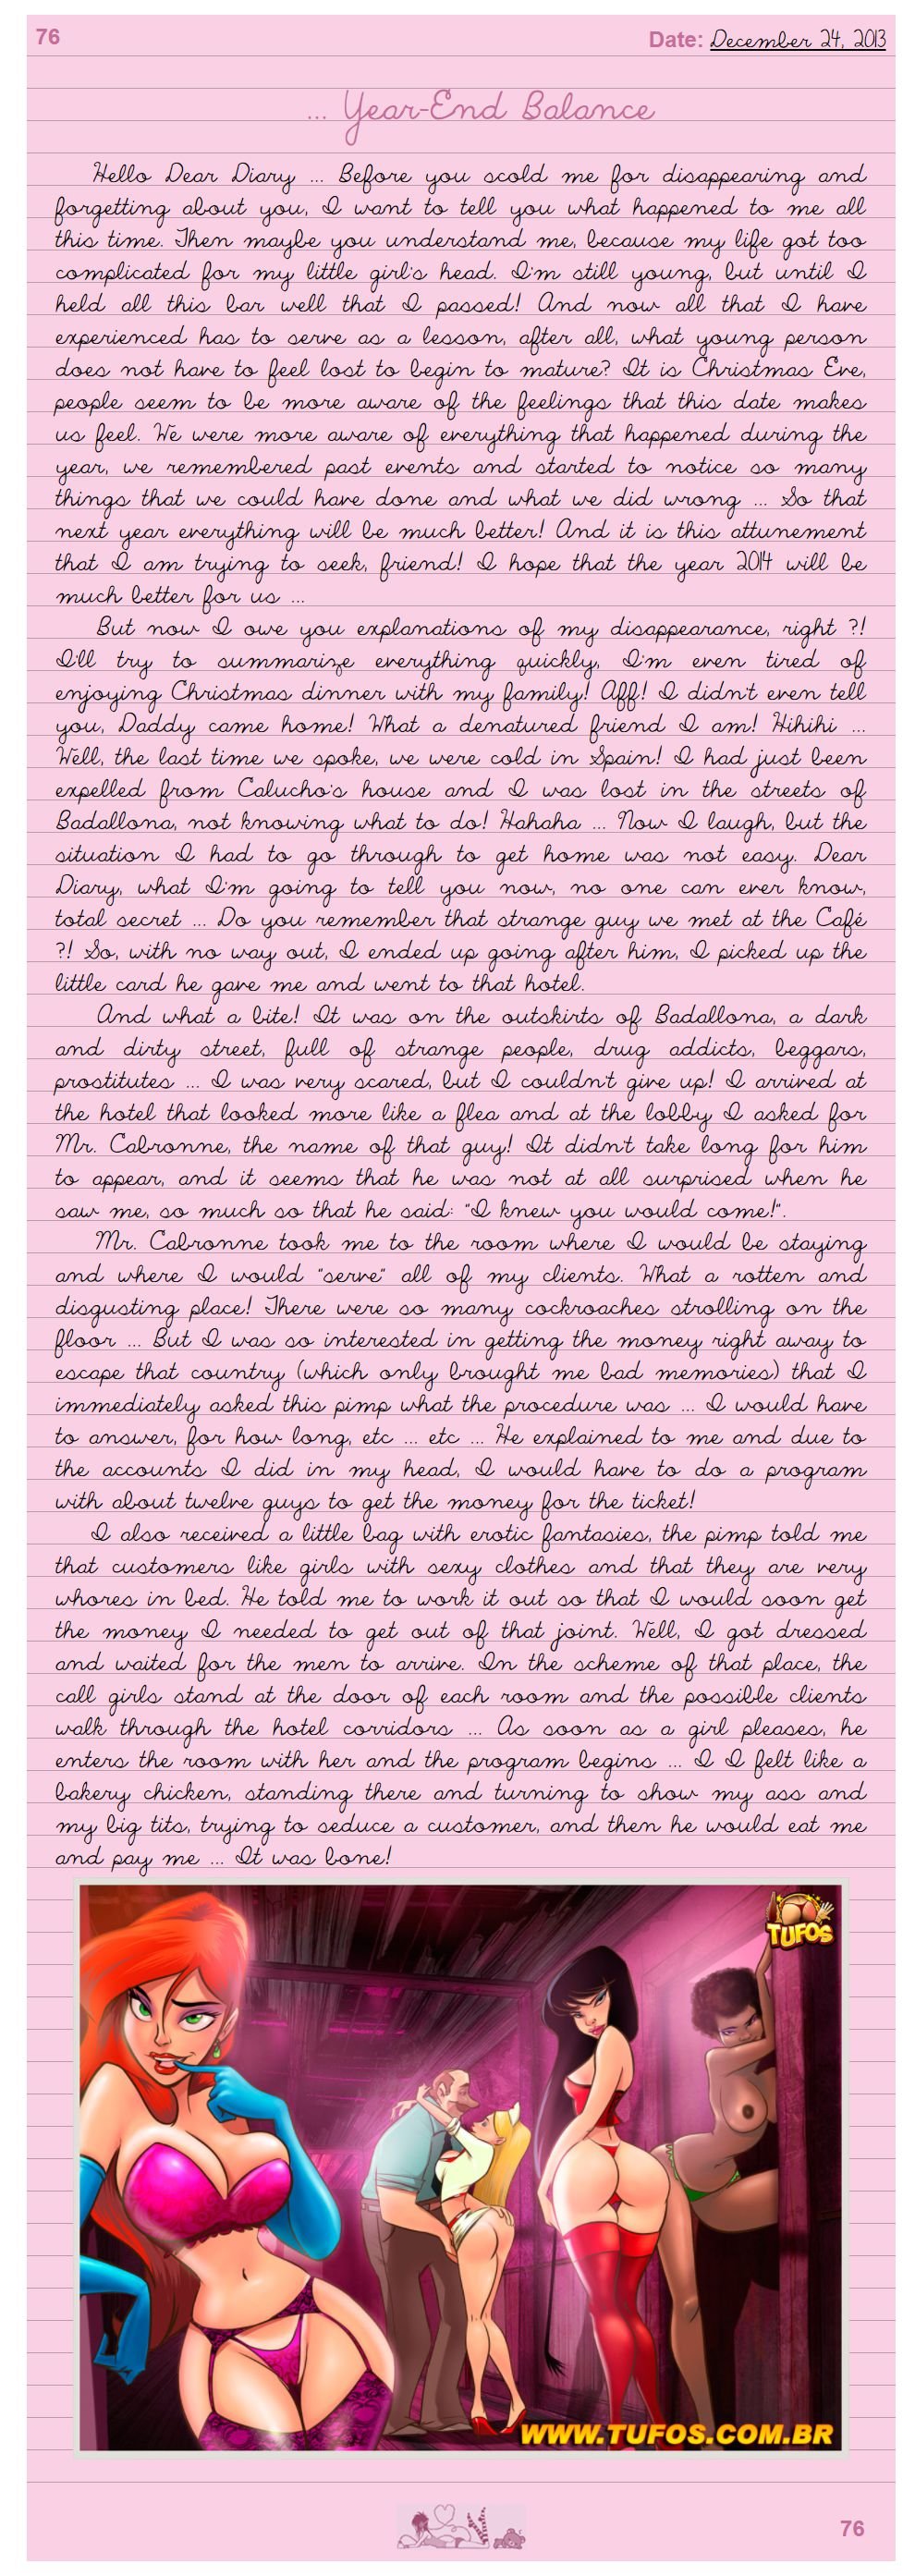 76
Date: December 24, 2013
... Year-End Balance
Hello Dear Diary ... Before you scold me for disappearing and
forgetting about you, I want to tell you what happened to me all
this time. Then maybe you understand me, because my life got too
complicated for my little girl's head. I'm still young, but until I
held all this bar well that I passed! And now all that I have
experienced has to serve as a lesson, after all, what young person
does not have to feel lost to begin to mature? It is Christmas Eve,
people seem to be more aware of the feelings that this date makes
us feel. We were more aware of everything that happened during the
year, we remembered past events and started to notice so many
things that we could have done and what we did wrong ... So that
next year everything will be much better! And it is this attunement
that I am trying to seek, friend! I hope that the year 2014 will be
much better for us ...
But now I owe you explanations of my disappearance, right ?!
I'll try to summarize everything quickly, I'm even tired of
enjoying Christmas dinner with my family! Aff! I didn't even tell
you, Daddy came home! What a denatured friend I am! Hihihi ...
Well, the last time we spoke, we were cold in Spain! I had just been
expelled from Calucho's house and I was lost in the streets of
Badallona, not knowing what to do! Hahaha ... Now I laugh, but the
situation I had to go through to get home was not easy. Dear
Diary, what I'm going to tell you now, no one can ever know,
total secret ... Do you remember that strange guy we met at the Café
?! So, with no way out, I ended up going after him, I picked up the
little card he gave me and went to that hotel.
And what a bite! It was on the outskirts of Badallona, a dark
and dirty street, full of strange people, drug addicts, beggars,
prostitutes ... I was very scared, but I couldn't give up! I arrived at
the hotel that looked more like a flea and at the lobby I asked for
Mr. Cabronne, the name of that guy! It didn't take long for him
to appear, and it seems that he was not at all surprised when he
saw me, so much so that he said: "I knew you would come!".
Mr. Cabronne took me to the room where I would be staying
and where I would "serve" all of my clients. What a rotten and
disgusting place! There were so many cockroaches strolling on the
floor ... But I was so interested in getting the money right away to
escape that country (which only brought me bad memories) that I
immediately asked this pimp what the procedure was ... I would have
to answer, for how long, etc ... etc ... He explained to me and due to
the accounts I did in my head, I would have to do a program
with about twelve guys to get the money for the ticket!
I also received a little bag with erotic fantasies, the pimp told me
that customers like girls with sexy clothes and that they are very
whores in bed. He told me to work it out so that I would soon get
the money I needed to get out of that joint. Well, I got dressed
and waited for the men to arrive. In the scheme of that place, the
call girls stand at the door of each room and the possible clients
walk through the hotel corridors ... As soon as a girl pleases, he
enters the room with her and the program begins ... I I felt like a
bakery chicken, standing there and turning to show my ass and
my big tits, trying to seduce a customer, and then he would eat me
and pay me ... It was bone!
TUFOS
WWW.TUFOS.COM.BR
76